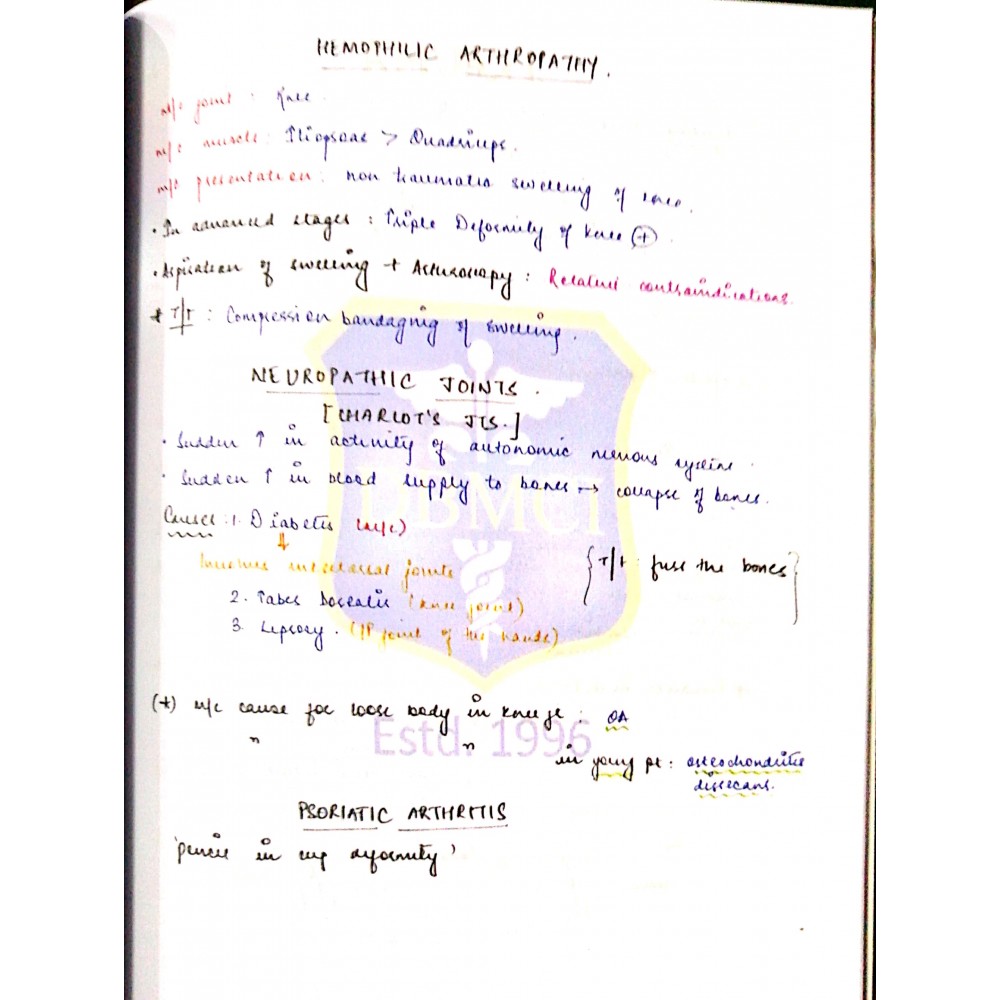 HEMOPHILIC ARTHROPATHY.
m/c joint : Knee.
m/c muscle : Iliopsoas > Quadriceps.
m/c presentation : non traumatic swelling of knee.
• In advanced stages : Triple Deformity of knee (+).
• Aspiration of swelling + Arthroscopy : Relative contraindications.
* T/t : Compression bandaging of swelling.
NEUROPATHIC JOINTS.
[CHARCOT'S JTS.]
• Sudden ↑ in activity of autonomic nervous system.
• Sudden ↑ in blood supply to bones → collapse of bones.
Causes : 1. Diabetis (m/c)
↓
Involves midtarsal joints
{T/t : fuse the bones}
2. Tabes Dorsalis (knee joint)
3. Leprosy. (IP joint of the hands)
(*) m/c cause for loose body in knee jt : OA
" " in young pt : osteochondritis
dissecans.
Estd. 1996
DBMCI
PSORIATIC ARTHRITIS
'pencil in cup deformity'